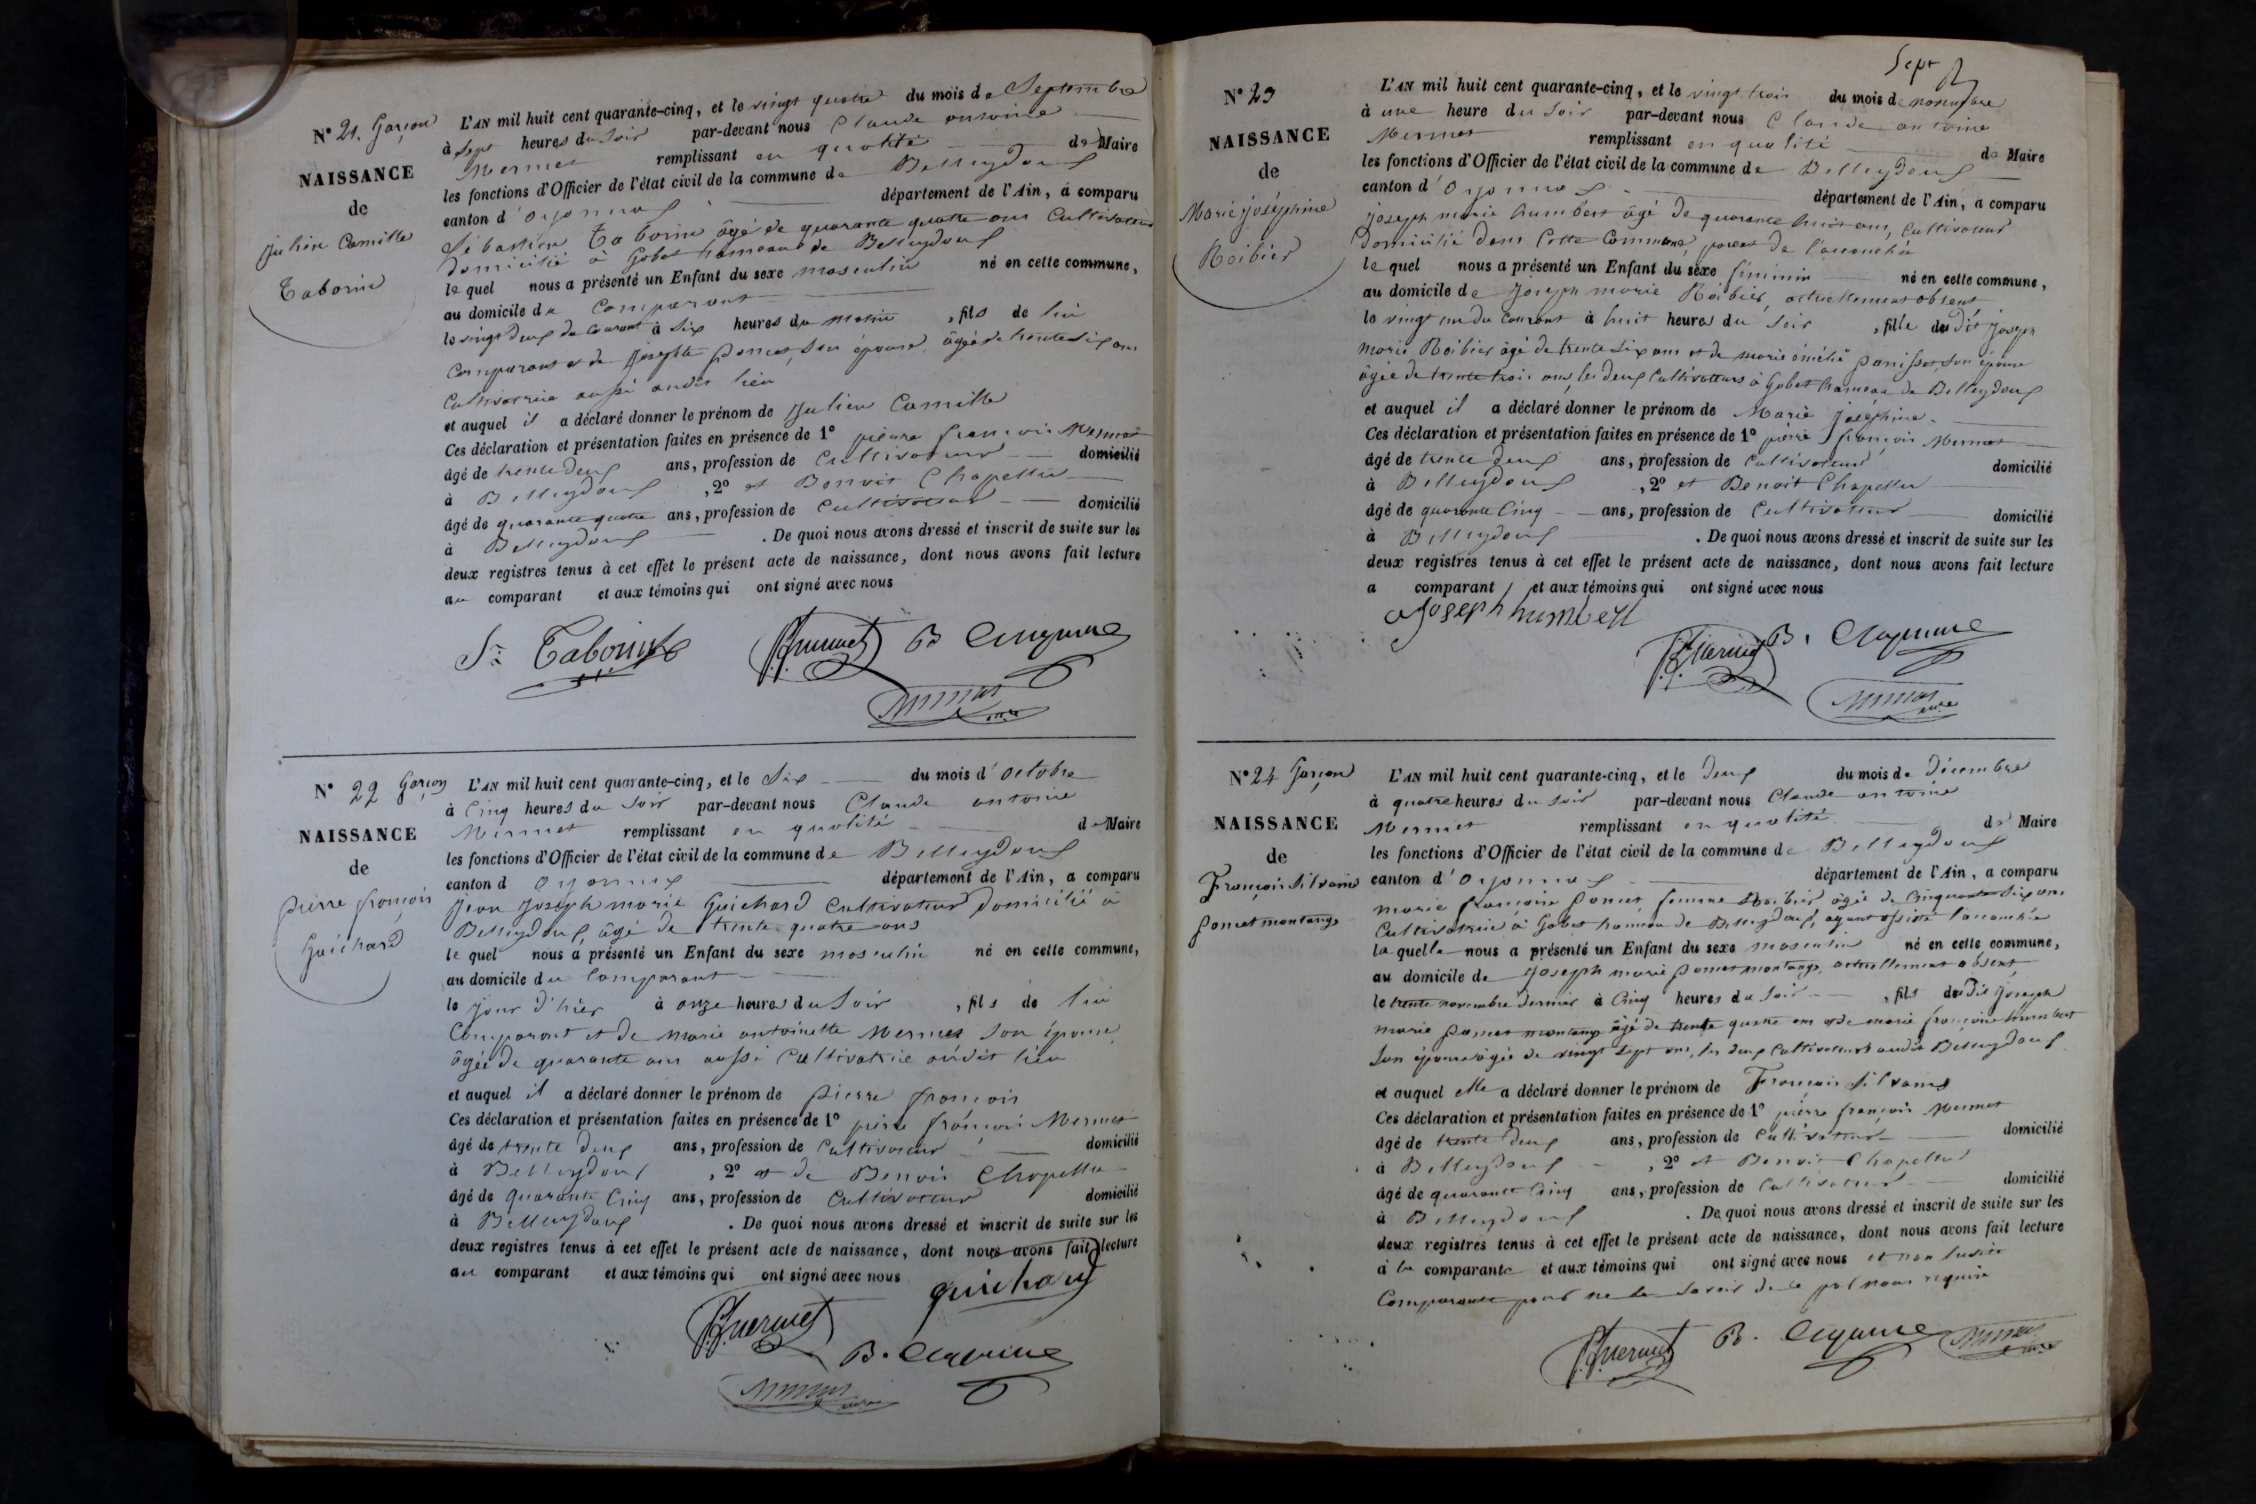 N° 21. Garçon
NAISSANCE
de
Julien Camille
Taborin
L'AN mil huit cent quarante-cinq, et le vingt quatre du mois de Septembre
à sept heures du soir par-devant nous Claude antoine
Mermet remplissant en qualité de Maire
les fonctions d'Officier de l'état civil de la commune de Belleydoux
canton d'oyonnax département de l'Ain, a comparu
Sébastien Taborin âgé de quarante quatre ans Cultivateur
domicilié à Gobet hameau de Belleydoux
lequel nous a présenté un Enfant du sexe masculin né en cette commune,
au domicile du Comparant
le vingt deux du Courant à six heures du matin, fils de lui
Comparant et de Josephte poncet, son épouse, âgée de trente six ans
Cultivatrice aussi audit lieu
et auquel il a déclaré donner le prénom de Julien Camille
Ces déclaration et présentation faites en présence de 1° pierre françois Mermet
âgé de trente deux ans, profession de Cultivateur domicilié
à Belleydoux, 2° et Benoit Chapellu
âgé de quarante quatre ans, profession de Cultivateur domicilié
à Belleydoux. De quoi nous avons dressé et inscrit de suite sur les
deux registres tenus à cet effet le présent acte de naissance, dont nous avons fait lecture
au comparant et aux témoins qui ont signé avec nous
Sn Taborin
Mermet
N° 22 Garçon
NAISSANCE
de
pierre françois
Guichard
L'AN mil huit cent quarante-cinq, et le Six du mois d'octobre
à Cinq heures du soir par-devant nous Claude antoine
Mermet remplissant en qualité de Maire
les fonctions d'Officier de l'état civil de la commune de Belleydoux
canton d oyonnax département de l'Ain, a comparu
Jean Joseph marie Guichard Cultivateur domicilié à
Belleydoux, âgé de trente quatre ans
lequel nous a présenté un Enfant du sexe masculin né en cette commune,
au domicile du Comparant
le jour d'hier à onze heures du Soir, fils de lui
Comparant et de Marie antoinette Mermet son épouse,
âgée de quarante ans aussi Cultivatrice audit lieu
et auquel il a déclaré donner le prénom de pierre françois
Ces déclaration et présentation faites en présence de 1° pierre françois Mermet
âgé de trente deux ans, profession de Cultivateur domicilié
à Belleydoux, 2° et de Benoit Chapellu
âgé de quarante Cinq ans, profession de Cultivateur domicilié
à Belleydoux. De quoi nous avons dressé et inscrit de suite sur les
deux registres tenus à cet effet le présent acte de naissance, dont nous avons fait lecture
au comparant et aux témoins qui ont signé avec nous
guichard
Mermet
Sept
N° 23
NAISSANCE
de
Marie joséphine
Roibier
L'AN mil huit cent quarante-cinq, et le vingt trois du mois de novembre
à une heure du soir par-devant nous Claude antoine
Mermet remplissant en qualité de Maire
les fonctions d'Officier de l'état civil de la commune de Belleydoux
canton d'oyonnax département de l'Ain, a comparu
joseph marie humbert âgé de quarante huit ans, Cultivateur
domicilié dans Cette Commune, parent de l'accouchée
lequel nous a présenté un Enfant du sexe féminin né en cette commune,
au domicile de joseph marie Roibier, actuellement absent
le vingt un du Courant à huit heures du soir, fille du dit joseph
marie Roibier âgé de trente six ans et de marie émélie panisset, son épouse
âgée de trente trois ans, les deux Cultivateurs à Gobet hameau de Belleydoux
et auquel il a déclaré donner le prénom de Marie joséphine.
Ces déclaration et présentation faites en présence de 1° pierre françois Mermet
âgé de trente deux ans, profession de Cultivateur domicilié
à Belleydoux, 2° et Benoit Chapellu
âgé de quarante Cinq ans, profession de Cultivateur domicilié
à Belleydoux. De quoi nous avons dressé et inscrit de suite sur les
deux registres tenus à cet effet le présent acte de naissance, dont nous avons fait lecture
a comparant et aux témoins qui ont signé avec nous
Joseph humbert
Mermet
N° 24 Garçon
NAISSANCE
de
François Silvain
poncet montange
L'AN mil huit cent quarante-cinq, et le deux du mois de décembre
à quatre heures du soir par-devant nous Claude antoine
Mermet remplissant en qualité de Maire
les fonctions d'Officier de l'état civil de la commune de Belleydoux
canton d'oyonnax département de l'Ain, a comparu
marie françoise poncet, femme Roibier âgée de Cinquante six ans
Cultivatrice à Gobet hameau de Belleydoux, ayant assisté l'accouchée
laquelle nous a présenté un Enfant du sexe masculin né en cette commune,
au domicile de joseph marie poncet montange, actuellement absent,
le trente novembre dernier à Cinq heures du soir, fils du dit joseph
marie poncet montange âgé de trente quatre ans et de marie françoise humbert
son épouse âgée de vingt sept ans, les deux Cultivateurs audit Belleydoux
et auquel elle a déclaré donner le prénom de François Silvain
Ces déclaration et présentation faites en présence de 1° pierre françois Mermet
âgé de trente deux ans, profession de Cultivateur domicilié
à Belleydoux, 2° et Benoit Chapellu
âgé de quarante Cinq ans, profession de Cultivateur domicilié
à Belleydoux. De quoi nous avons dressé et inscrit de suite sur les
deux registres tenus à cet effet le présent acte de naissance, dont nous avons fait lecture
a la comparante et aux témoins qui ont signé avec nous et non ladite
Comparante pour ne le savoir de ce par nous requise
Mermet